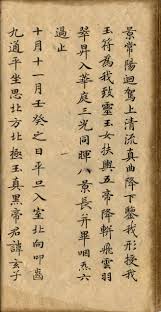 景常陽迴駕上清流真曲降下鑒我形授我
玉符為我致靈玉女扶輿五帝降軿飛雲羽
蓋昇入華庭三光同暉八景長并畢咽炁六
過止
十月十一月壬癸之日平旦入室北向叩齒
九通平坐思北方北極玉真黑帝君諱玄子